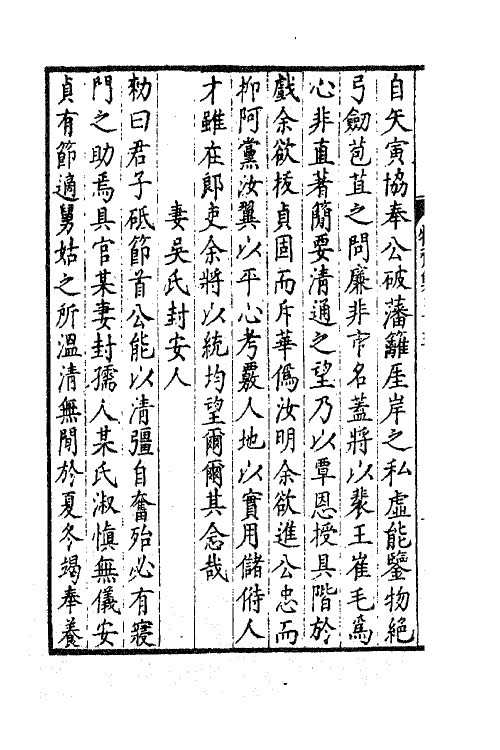 自矢寅協奉公破藩籬厓岸之私虛能鑒物絶
弓劒苞苴之問廉非市名蓋將以裴王崔毛爲
心非直著簡要清通之望乃以覃恩授具階於
戲余欲按貞固而斥華僞汝明余欲進公忠而
抑阿黨汝翼以平心考覈人地以實用儲偫人
才雖在郎吏余將以統均望爾爾其念哉
妻吳氏封安人
勑曰君子砥節首公能以清彊自奮殆必有寢
門之助焉具官某妻封孺人某氏淑愼無儀安
貞有節適舅姑之所溫凊無間於夏冬竭奉養